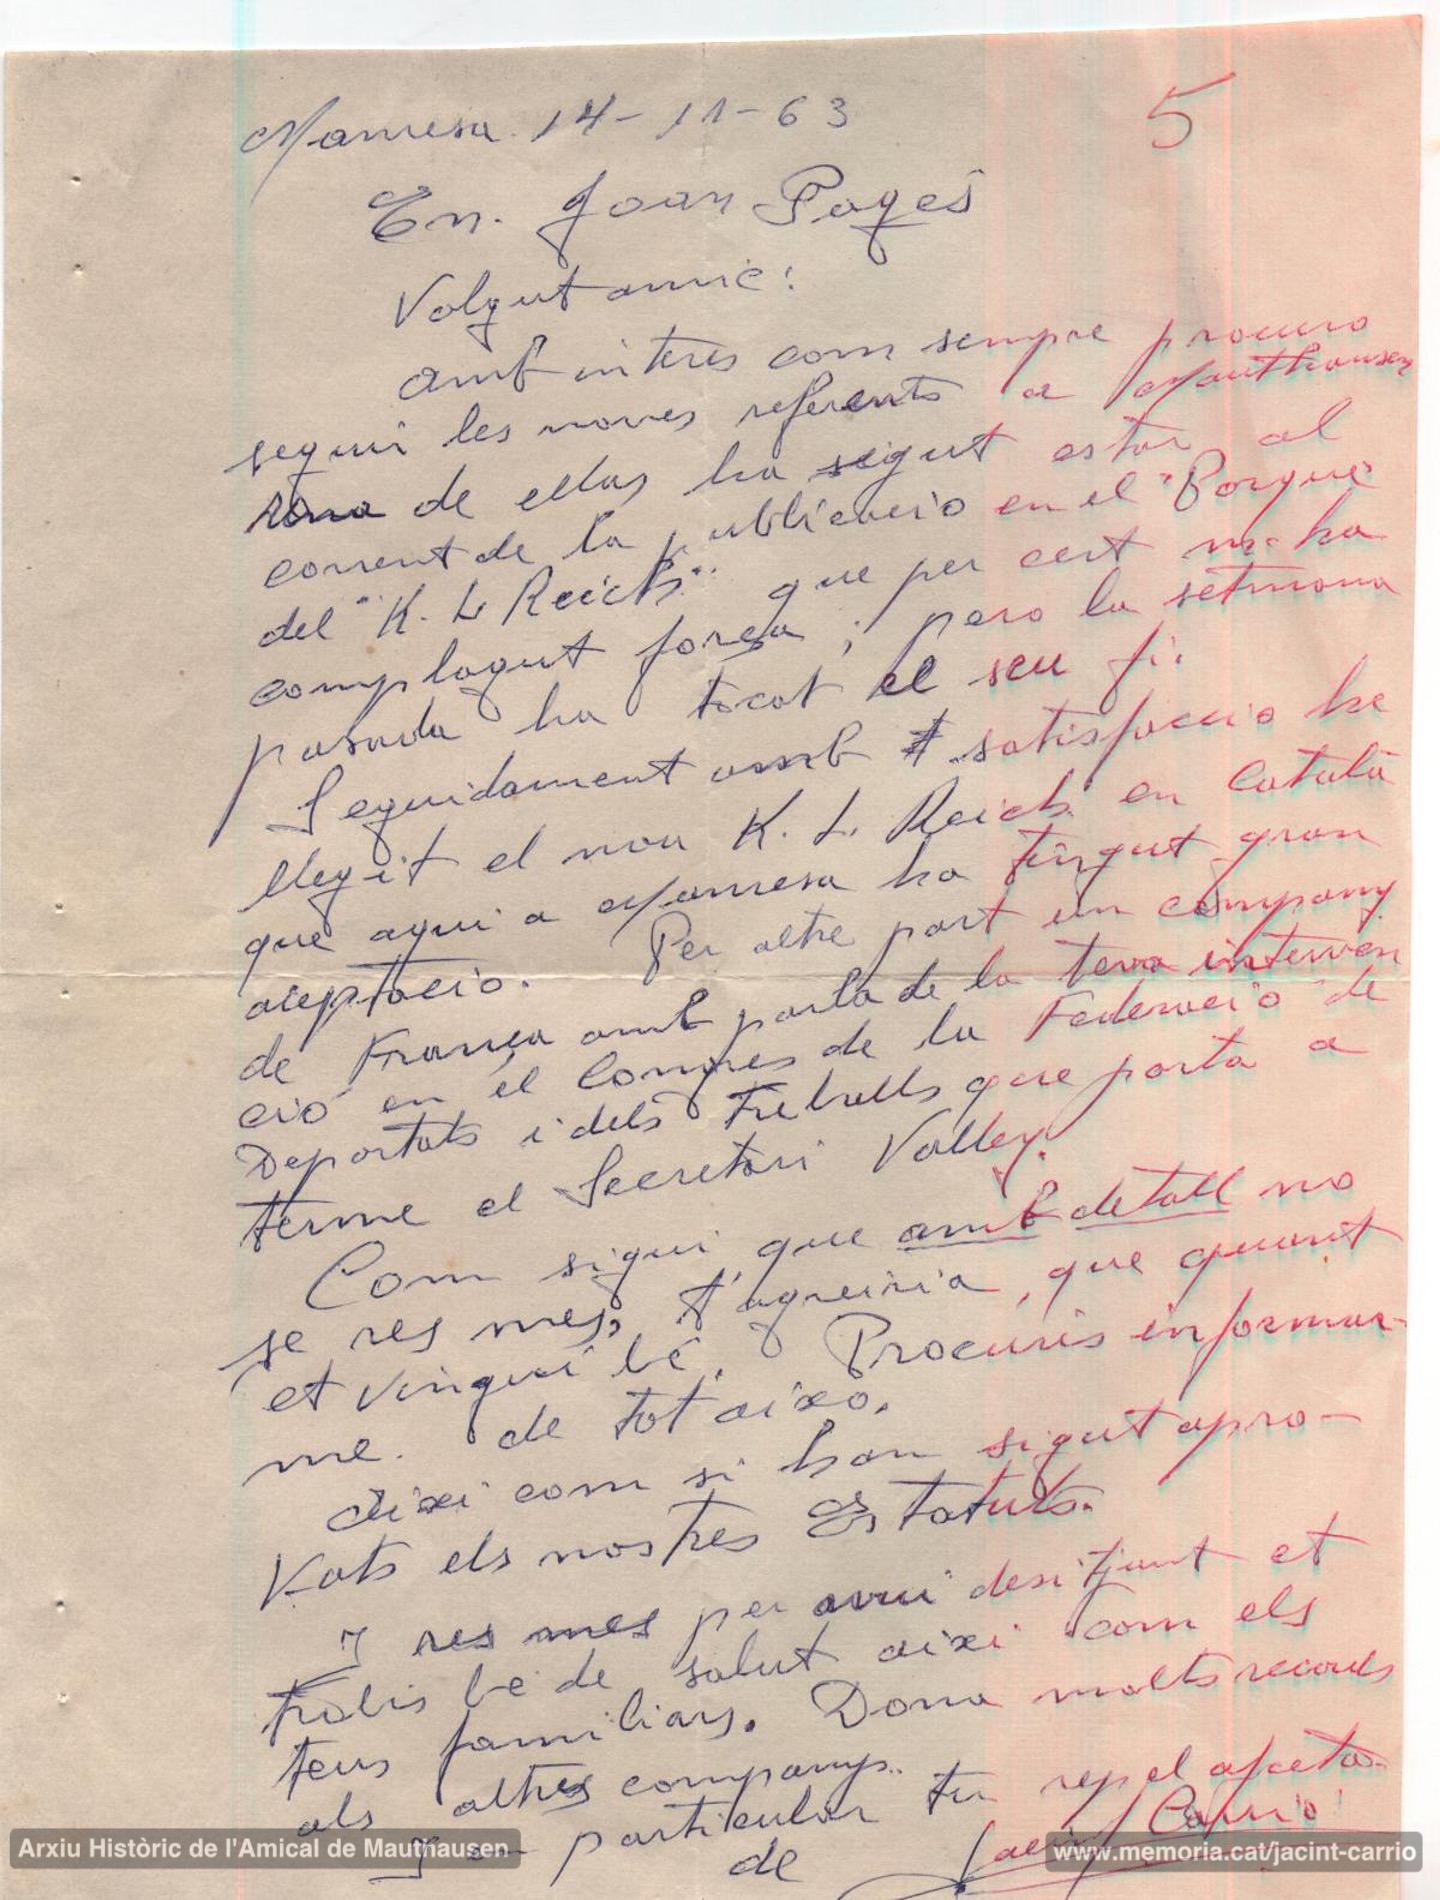 Manresa 14-11-63
5
En. Joan Pagés
Volgut amic:
amb interes com sempre procuro
seguir les noves referents a Mauthausen
una de ellas ha sigut estar al
corrent de la publicacio en el "Porque
del "K. L Reich" que per cert m-ha
complagut força; pero la setmana
pasada ha tocat el seu fi.
Seguidament amb satisfaccio he
llegit el nou K. L. Reich en Català
que aqui a Manresa ha tingut gran
aceptacio. Per altre part un company
de França amb parla de la teva interven
ció en el Congres de la Federació de
Deportats i dels treballs que porta a
terme el Secretari Valley.
Com sigui, que amb detall no
se res mes, t'agreiria, que quant
et vingui bé. Procuris informar-
me. de tot aixo.
Aixi com si han sigut apro-
vats els nostres Estatuts.
I res mes per avui desitjant et
trobis bé de salut aixi com els
teus familiars. Dona molts records
als altres companys.
I en particular tu rep el afecta
de Jacin Carrió
Arxiu Històric de l'Amical de Mauthausen
www.memoria.cat/jacint-carrio